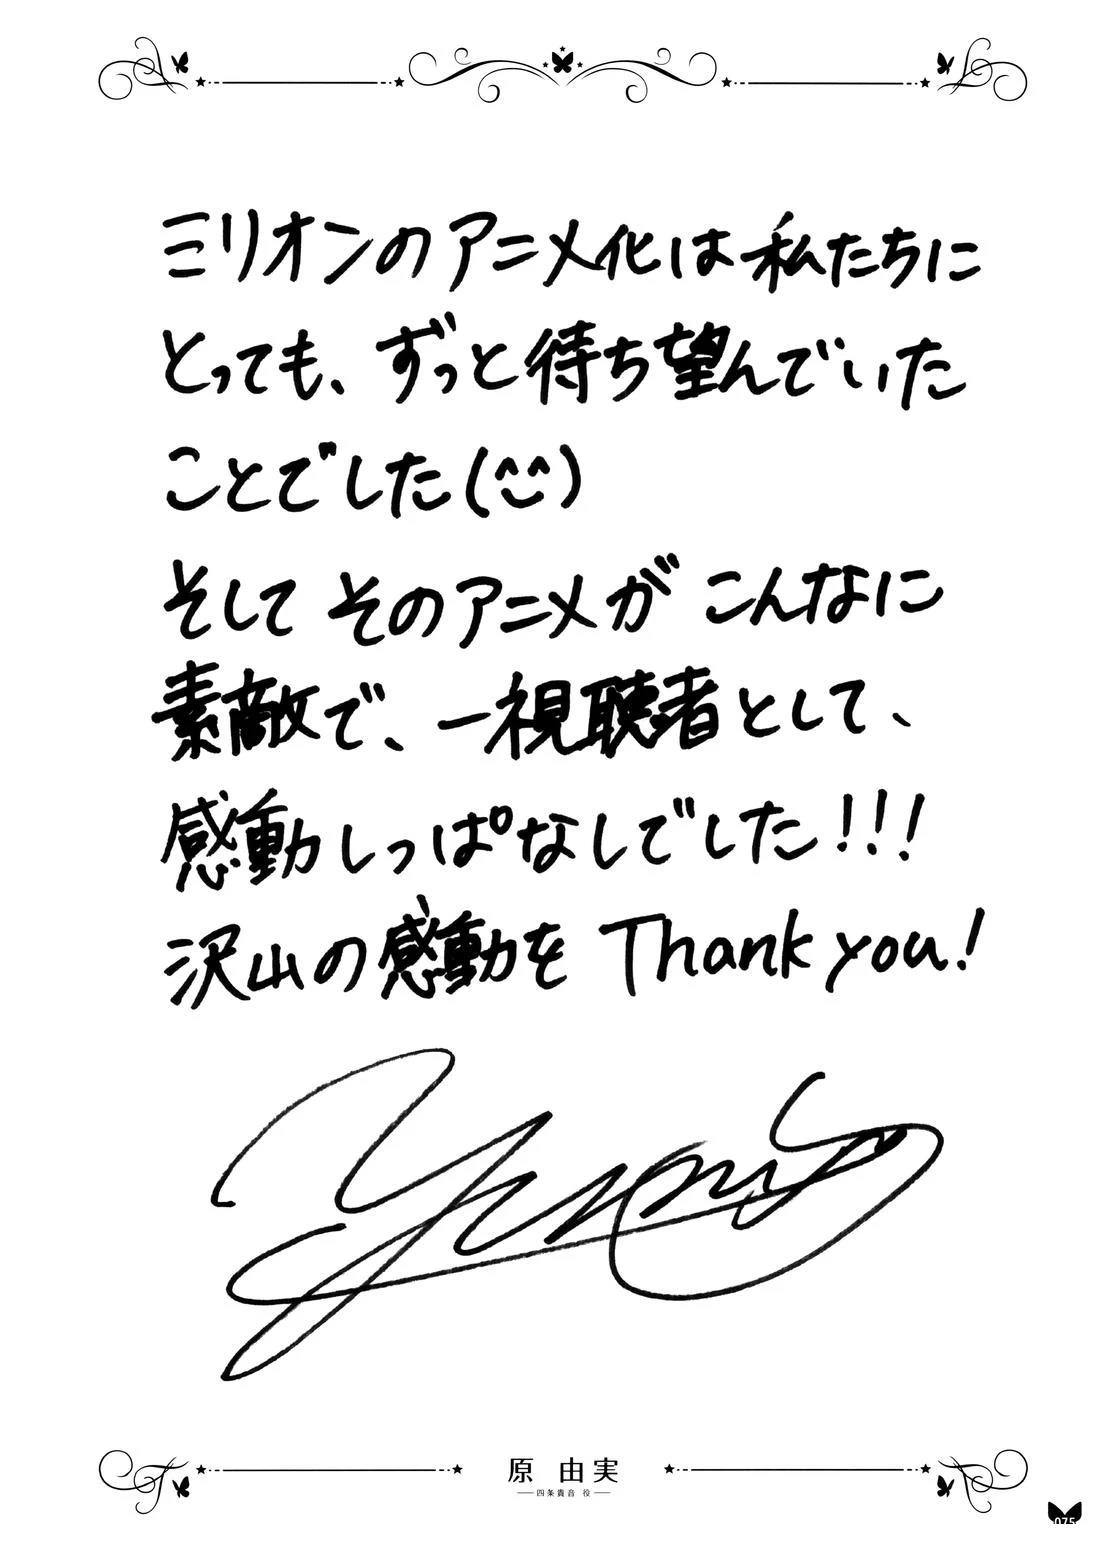 ミリオンのアニメ化は私たちに
とっても、ずっと待ち望んでいた
ことでした(^^)
そして そのアニメが こんなに
素敵で、一視聴者として、
感動しっぱなしでした!!!
沢山の感動を Thank you!
原 由実
四条貴音 役
075